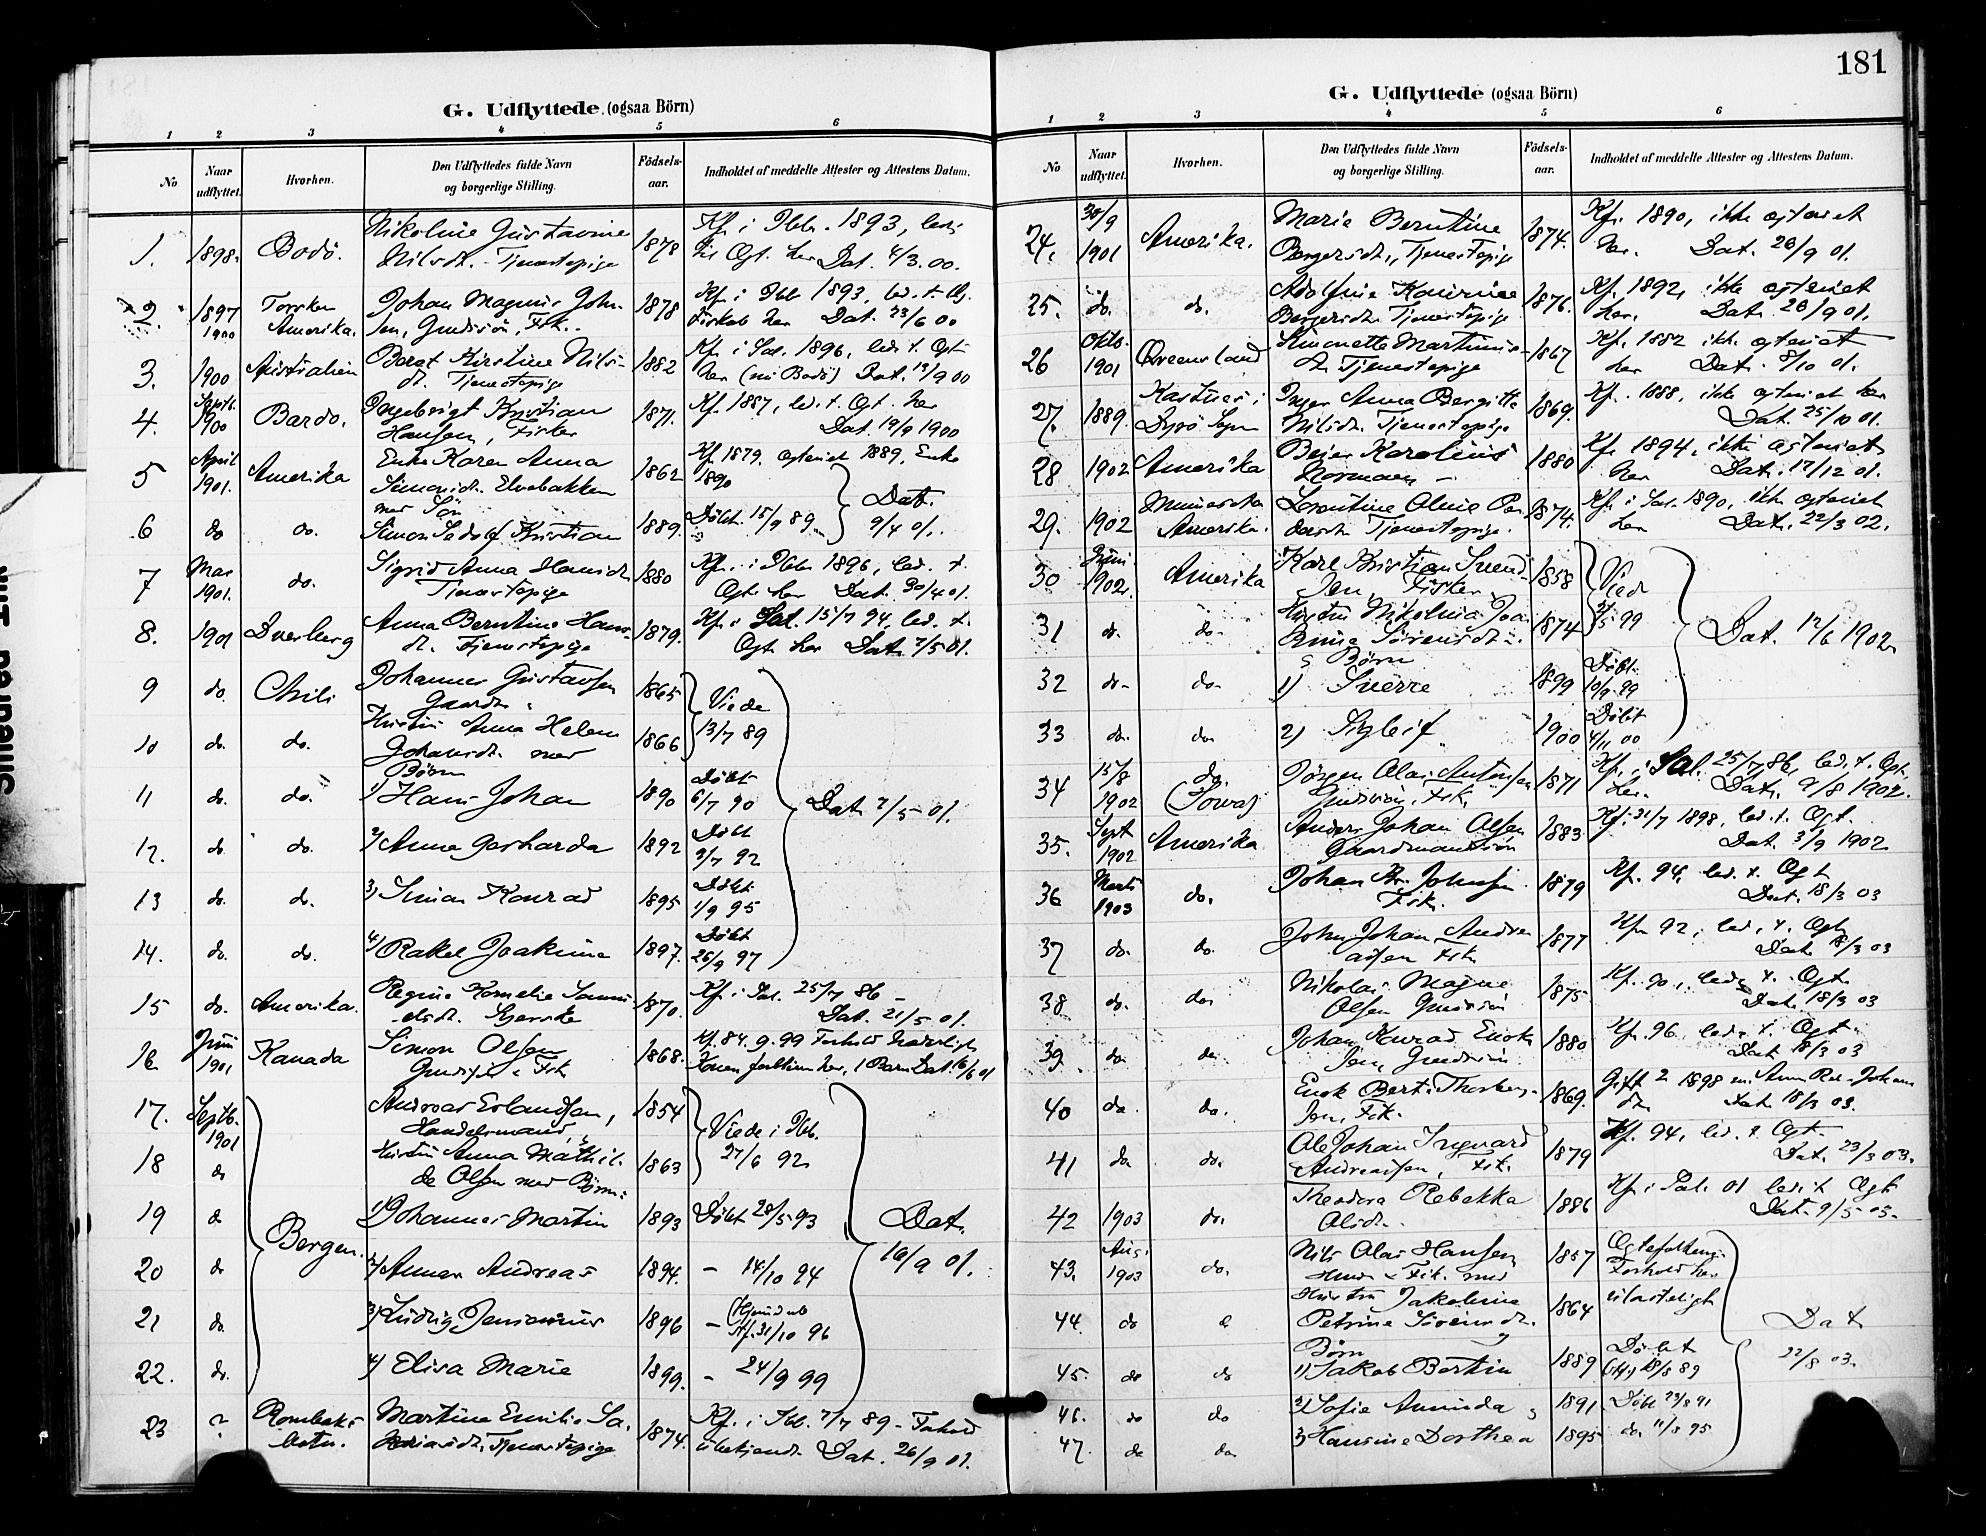 181
G. Udflyttede (ogsaa Börn)
1 2 3 4 5 6
No
Naar udflyttet.
Hvorhen.
Den Udflyttedes fulde Navn og borgerlige Stilling.
Födsels-aar.
Indholdet af meddelte Attester og Attestens Datum.
1. 1898. Bodö. Nikoline Gustavine 1878 Kf. i Ibb. 1893, led.
Nilsdt. Tjenestepige til Ægt. her Dat. 4/3.00.
2 1897 Torsken Johan Magnus John- 1878 Kf. i Ibb 1893, led. t. Æg-
1900 Amerika. sen, Fisk. teskab her Dat. 23/6 00
3. 1900 Australien Berget Kirstine Nils- 1882 Kf. i Sal. 1896, led. t. Ægt
dt. Tjenestepige her (nu Bodö) Dat. 12/9 00
4. Septb. 1900 Bardo. Ingebrigt Kristian 1871. Kf. 1887, led. t. Ægt. her
Hansen, Fisker Dat. 19/9 1900
5 April 1901. Amerika Enke Karen Anna 1862 Kf. 1879, ægteviet 1889, Enke
Simonsdt. Elvebakken 1890
med Sön Dat.
6 do do. Simon Sedolf Kristian 1889. Döbt. 15/9 89. 9/4 01.
7 Mai 1901. do. Sigrid Anna Hansdt. 1880 Kf. i Ibb. 1896, led. t.
Tjenestepige Ægt. her Dat. 30/4 01.
8. 1901 Dverberg Anna Berntine Hans- 1879. Kf. i Sal. 15/7 94, led. t.
dt. Tjenestepige Ægt. her Dat. 7/5 01.
9 do Chili Johannes Gustavsen 1865 Viede
10 do. do. Hustru Anna Helene 1866 13/7 89
Johansdt. med
Börn
11 do. do. 1) Hans Johan 1890 Döbt 6/7 90 Dat. 7/5 01.
12. do. do. 2) Anna Gerharda 1892 Döbt 3/7 92
13 do. do. 3) Simon Konrad 1895 Döbt 1/9 95
14. do. do. 4) Rakel Joakime 1897. Döbt 26/9 97
15 do. Amerika. Regine Kornelie Samu- 1870. Kf. i Sal. 25/7 86 -
elsdt. Dat. 21/5 01.
16 Juni 1901 Kanada Simon Olsen 1868. Kf. 84. 9. 99 Forhold
Fisk
17. Septb. 1901 Andreas Erlandsen, 1854 Viede i Ibb.
Handelsmand,
18 do Hustru Anna Mathil- 1863 27/6 92
de Olsen med Börn:
19 do Bergen. 1) Johannes Martin 1893 Döbt 28/5 93 Dat.
20 do 2) Andreas 1894. - 14/10 94 16/9 01.
21 do. 3) Ludvig 1896 - Hjemdöb Stf. 31/10 96
22. do. 4) Elisa Marie 1899. - 24/9 99
23 ? Rombaks- Martine Emilie Za- 1874. Kf. i Ibb. 7/7 89 - Forhold
botn. Tjenestepige ubekjendt Dat. 26/9 01.
G. Udflyttede (ogsaa Börn)
1 2 3 4 5 6
No
Naar udflyttet.
Hvorhen.
Den Udflyttedes fulde Navn og borgerlige Stilling.
Födsels-aar.
Indholdet af meddelte Attester og Attestens Datum.
24. 30/9 1901 Amerika. Marie Berntine 1874. Kf. 1890, ikke ægteviet
Bergersdt., Tjenestepige her. Dat. 26/9 01.
25. do. do. Adolfine 1876. Kf. 1892, ikke ægteviet
Bergersdt. Tjenestepige her. Dat. 26/9 01.
26 Oktb. 1901 Qveensland Simonette Martinus- 1867 Kf. 1882 ikke ægteviet
dt. Tjenestepige her Dat. 8/10 01.
27. 1889. Kastnes i Inger Anna Bergitte 1869. Kf. 1888, ikke ægteviet her
Dyrö Sogn Nilsdt. Tjenestepige Dat. 25/10 01.
28 1902 Amerika Beier Karolius 1880 Kf. 1894, ikke ægteviet
Normann - her Dat. 17/12 01.
29. 1902 Minnesota Lorentine Oline Pe- 1874. Kf. i Sal. 1890, ikke ægteviet
Amerika. dersdt. Tjenestepige. her Dat. 22/3 02.
30 Juni 1902. Amerika Karl Kristian Svend- 1858 Viede
sen, Fisker
31 do. do. Hustru Nikolina Joa- 1874 99 Dat. 12/6 1902
Sörensdt.
Börn
32 do. do. 1) Sverre 1899 Döbt. 10/9 99
33 do. do. 2) Sigleif 1900 Döbt 4/11 00
34 15/8 1902 do. (Iowa) Jörgen Olai Antonsen 1871 Kf. i Sal. 25/7 86, led. t. Ægt.
Fisk her. Dat. 9/8 1902.
35. Sept 1902 Amerika Anders Johan Olsen 1883 Kf. 31/7 1898, led. t. Ægt.
Gaardmandssön Dat. 3/9 1902
36 Marts 1903 do. Johan Johnsen 1879 Kf. 94, led. t. Ægt
Fisk. Dat. 18/3 03
37 do. do. John Johan Andre- 1877 Kf. 92, led. t. Ægt
assen Fisk Dat. 18/3 03
38 do. do. Nikolai Magne 1875 Kf. 90, led. t. Ægt
Olsen Dat. 18/3 03
39 do do Johan Konrad Enok- 1880 Kf. 96. led. t. Ægt.
sen, Dat. 18/3 03
40 do. do. Enok Bert. Thorberg- 1869. Gift 2 1898 m. Anna Johans-
sen, Fisk. dt. Dat. 18/3 03.
41 do do. Ole Johan Ingvard 1879 Kf. 94, led. t. Ægt.
Andreassen, Fisk. Dat. 23/3 03.
42 1903 do. Theodora Rebekka 1886 Kf. i Sal. 01 led. t Ægt
Olsdt. Dat. 9/5 03.
43. Aug. 1903 do. Nils Olai Hansen 1857 Ægtefolkenes
Fisk. med Forhold her
44. do do Hustru Jakobine 1864 ulasteligt Dat
Petrine
Börn
45. do do 1) Jakob Bertin 1889 Döbt 18/8 89 22/8 03.
46. do do 2) Sofie Aminda 1891 Döbt 23/8 91
47. do do 3) Hansine Dorthea 1895 do. 11/8 95